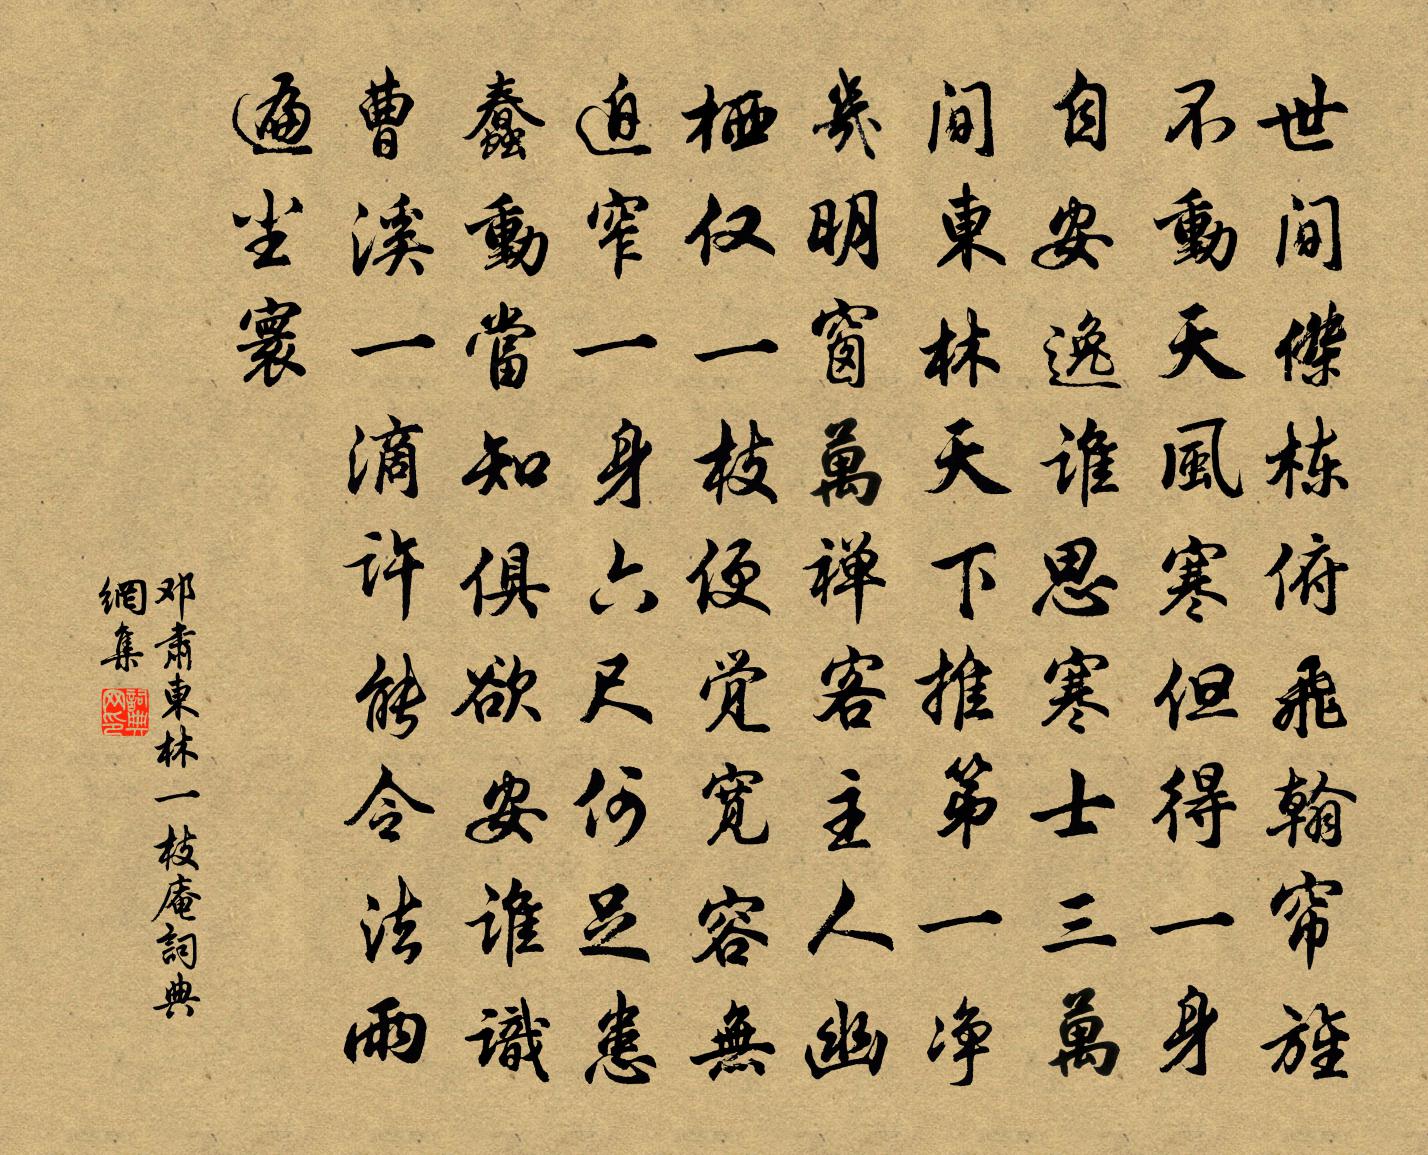 世间傑栋俯飛翰帘旌
不動天風寒但得一身
自安逸谁思寒士三萬
间東林天下推第一净
幾明窗萬禅客主人幽
栖仅一枝便觉宽容無
迫窄一身六尺何足患
蠢動當知俱欲安谁識
曹溪一滴许能令法雨
遍尘寰
邓肅東林一枝庵詞典
網集
詞典网印